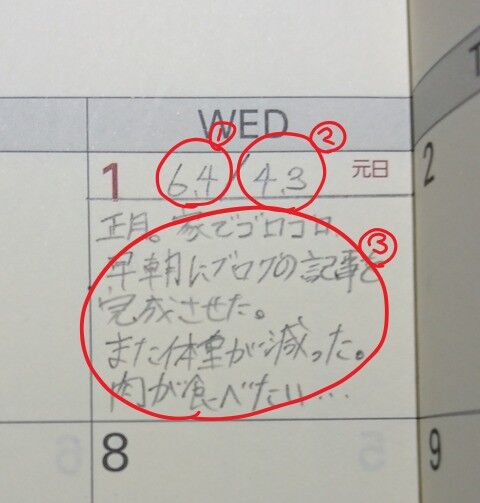 WED
① ②
1 6.4 / 4.3 元日 2
正月。家でゴロゴロ
③
早朝にブログの記事を
完成させた。
また体重が減った。
肉が食べたい…
8 9